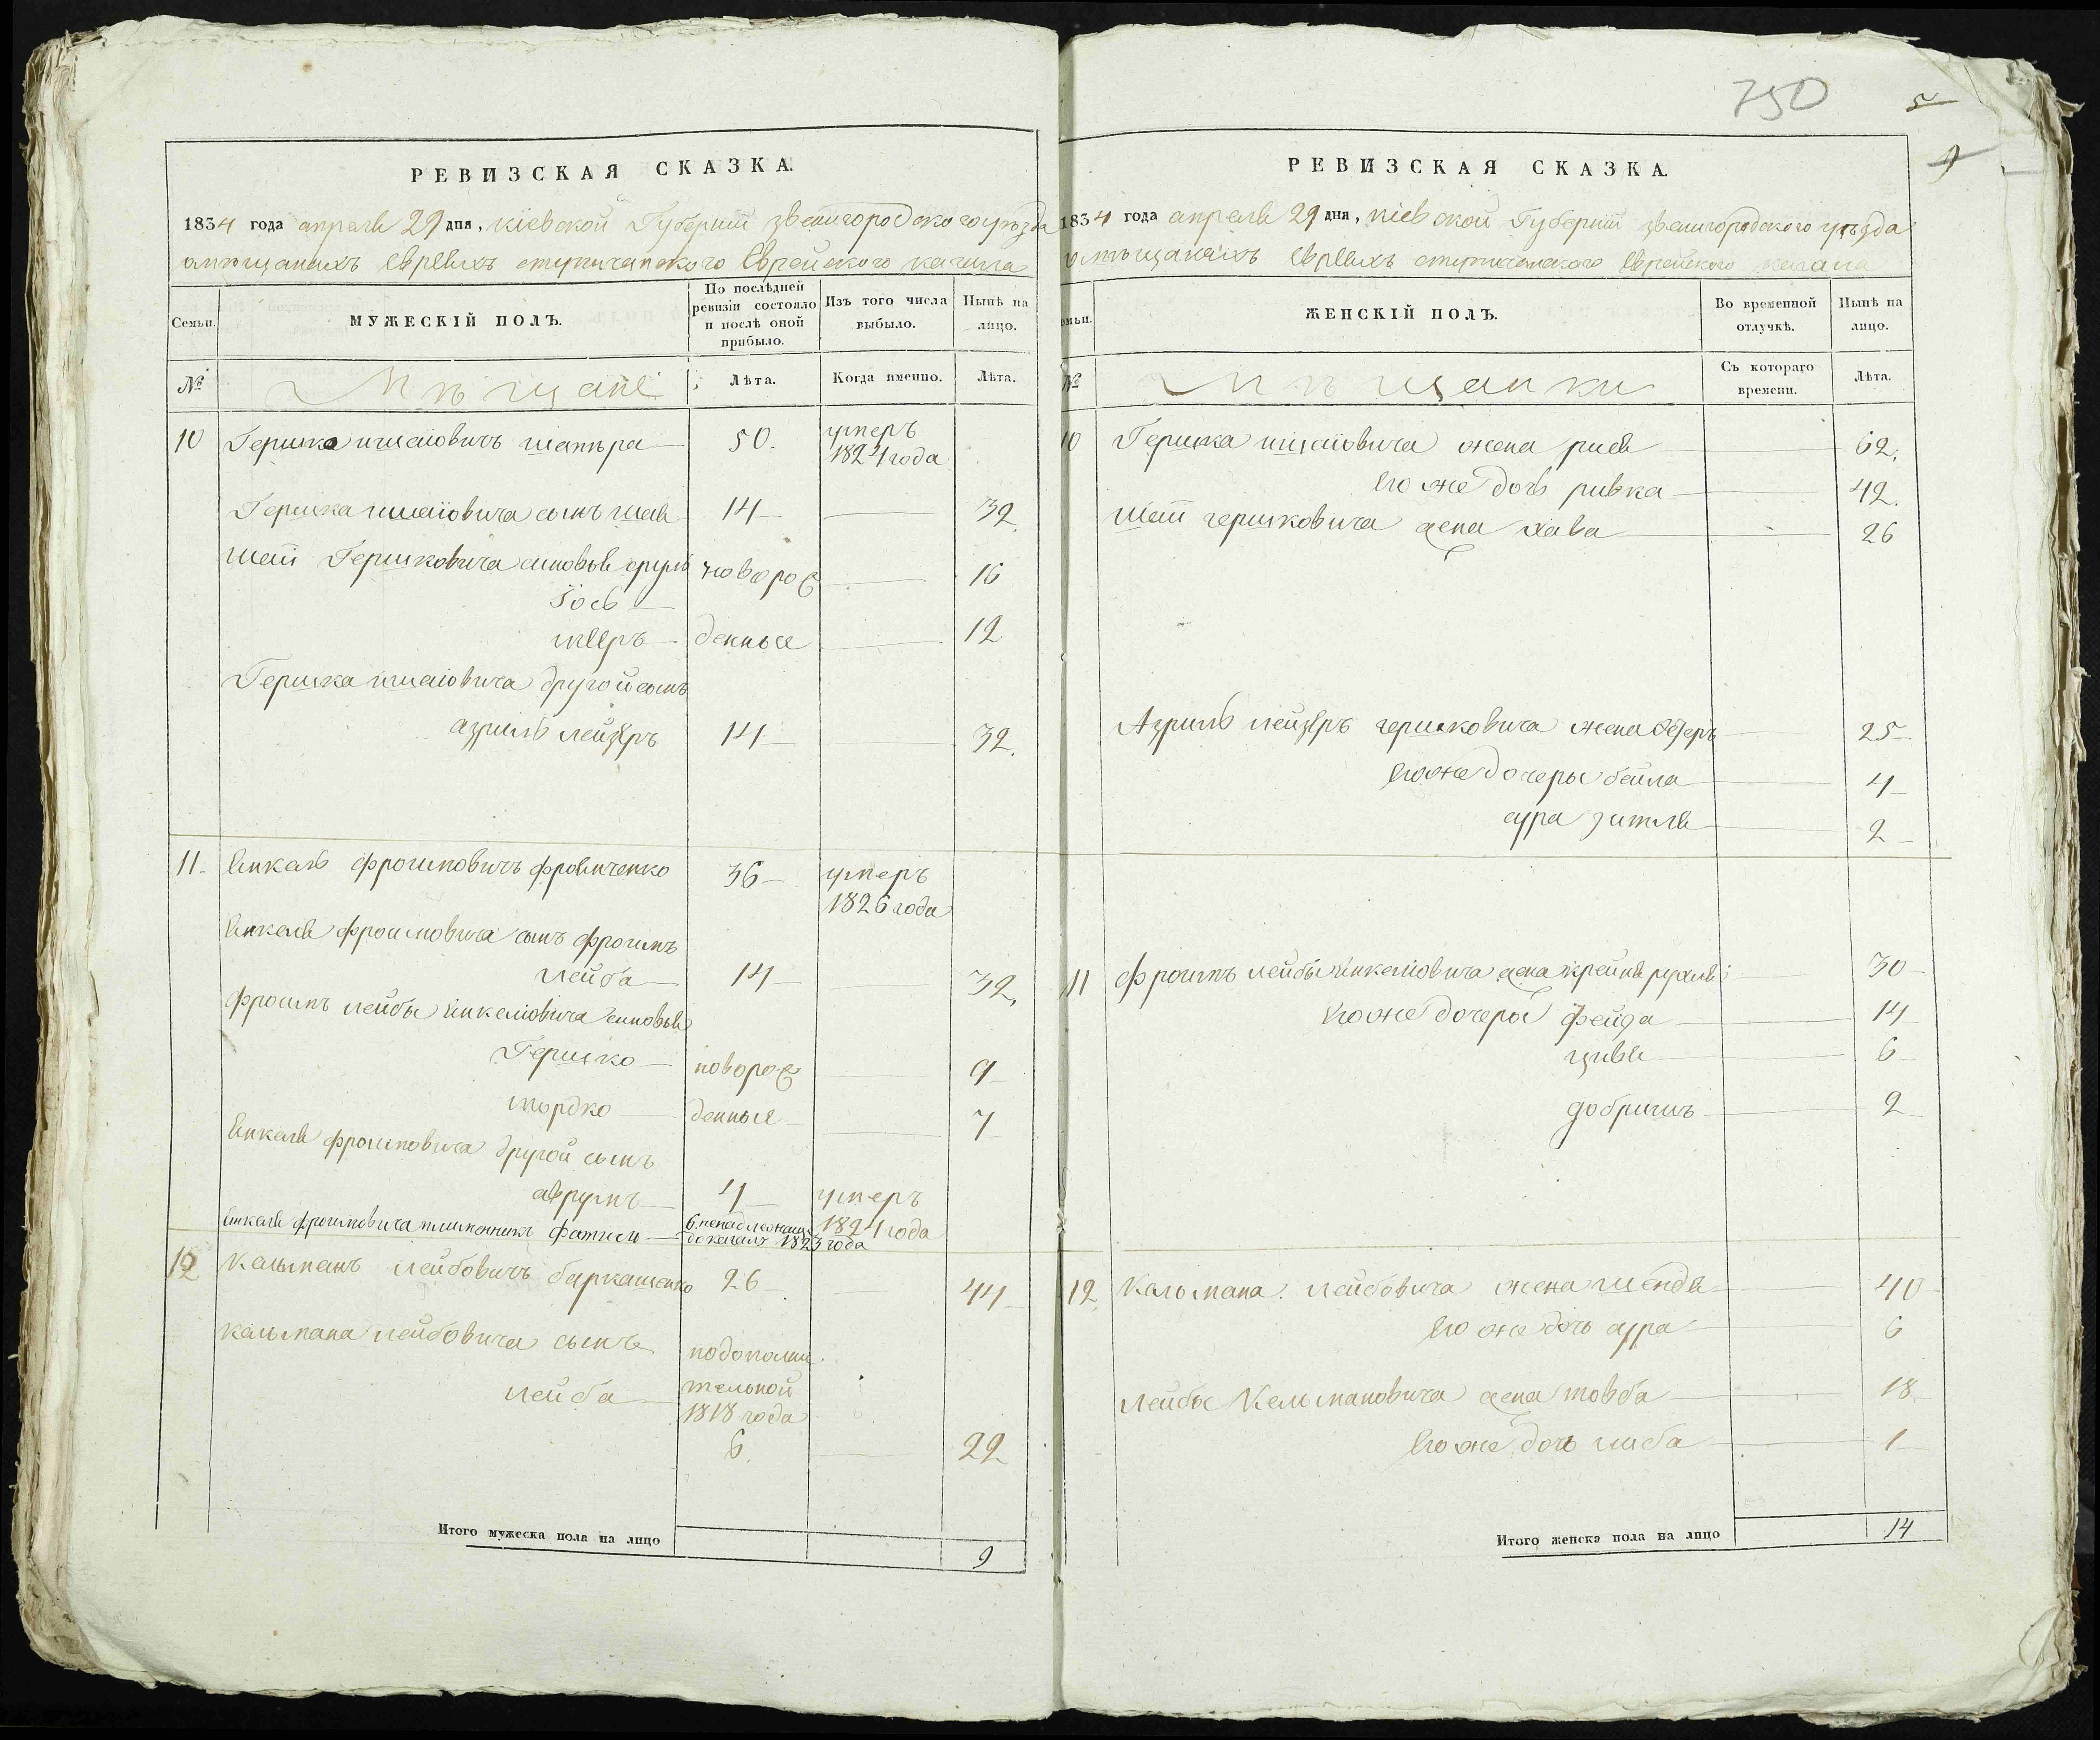 750
5
РЕВИЗСКАЯ СКАЗКА.
1834 года апреля 29 дня, кіевской Губерніи звенигородского уѣзда
омѣщанахъ евреяхъ Еврейского кагала
Семьи.
МУЖЕСКІЙ ПОЛЪ.
По послѣдней
ревизіи состояло
и послѣ оной
прибыло.
Изъ того числа
выбыло.
Нынѣ на
лицо.
№
Мѣщане
Лѣта.
Когда именно.
Лѣта.
10 Гершко 50. умеръ
1824 года
Гершка сынъ шая 14 32
шаи Гершковича сыновья сруль новорож 16
іось
мееръ денные 12
Гершка другой сынъ
азриль лейзеръ 14 32.
11. Янкель фроимовичъ 36 умеръ
1826 года
Янкеля фроимовича сынъ фроимъ
лейба 14 32.
фроимъ лейбы Янкелювича сыновья
Гершко новорож 9
мордко денные 7
Янкеля фроимовича другой сынъ
аврумъ 4 умеръ
1824 года
Янкеля фроимовича племенникъ
1823 года
12 Кальманъ лейбовичъ 26 44
Кальмана лейбовича сынъ подополни
лейба тельной
1818 года
6. 22
Итого мужеска пола на лицо 9
РЕВИЗСКАЯ СКАЗКА.
1834 года апреля 29 дня, кіевской Губерніи звенигородского уѣзда
омѣщанахъ евреяхъ еврейского кагала
ЖЕНСКІЙ ПОЛЪ.
Во временной
отлучкѣ.
Нынѣ на
лицо.
№
Мѣщанки
Съ котораго
времени.
Лѣта.
10 Гершка жена 62.
его же дочь ривка 42.
шаи гершковича жена хава 26
Азриль лейзеръ гершковича жена 25
его же дочеры бейла 4
сура зитля 2
11 фроимъ лейбы Янкелювича жена крейня рухля 30
его же дочеры фейга 14
цивя 6
добришъ 2
12. Кальмана лейбовича жена шендя 40
его же дочь сура 6
лейбы Кельмановича жена товба 18
его же дочь либа 1
Итого женска пола на лицо 14